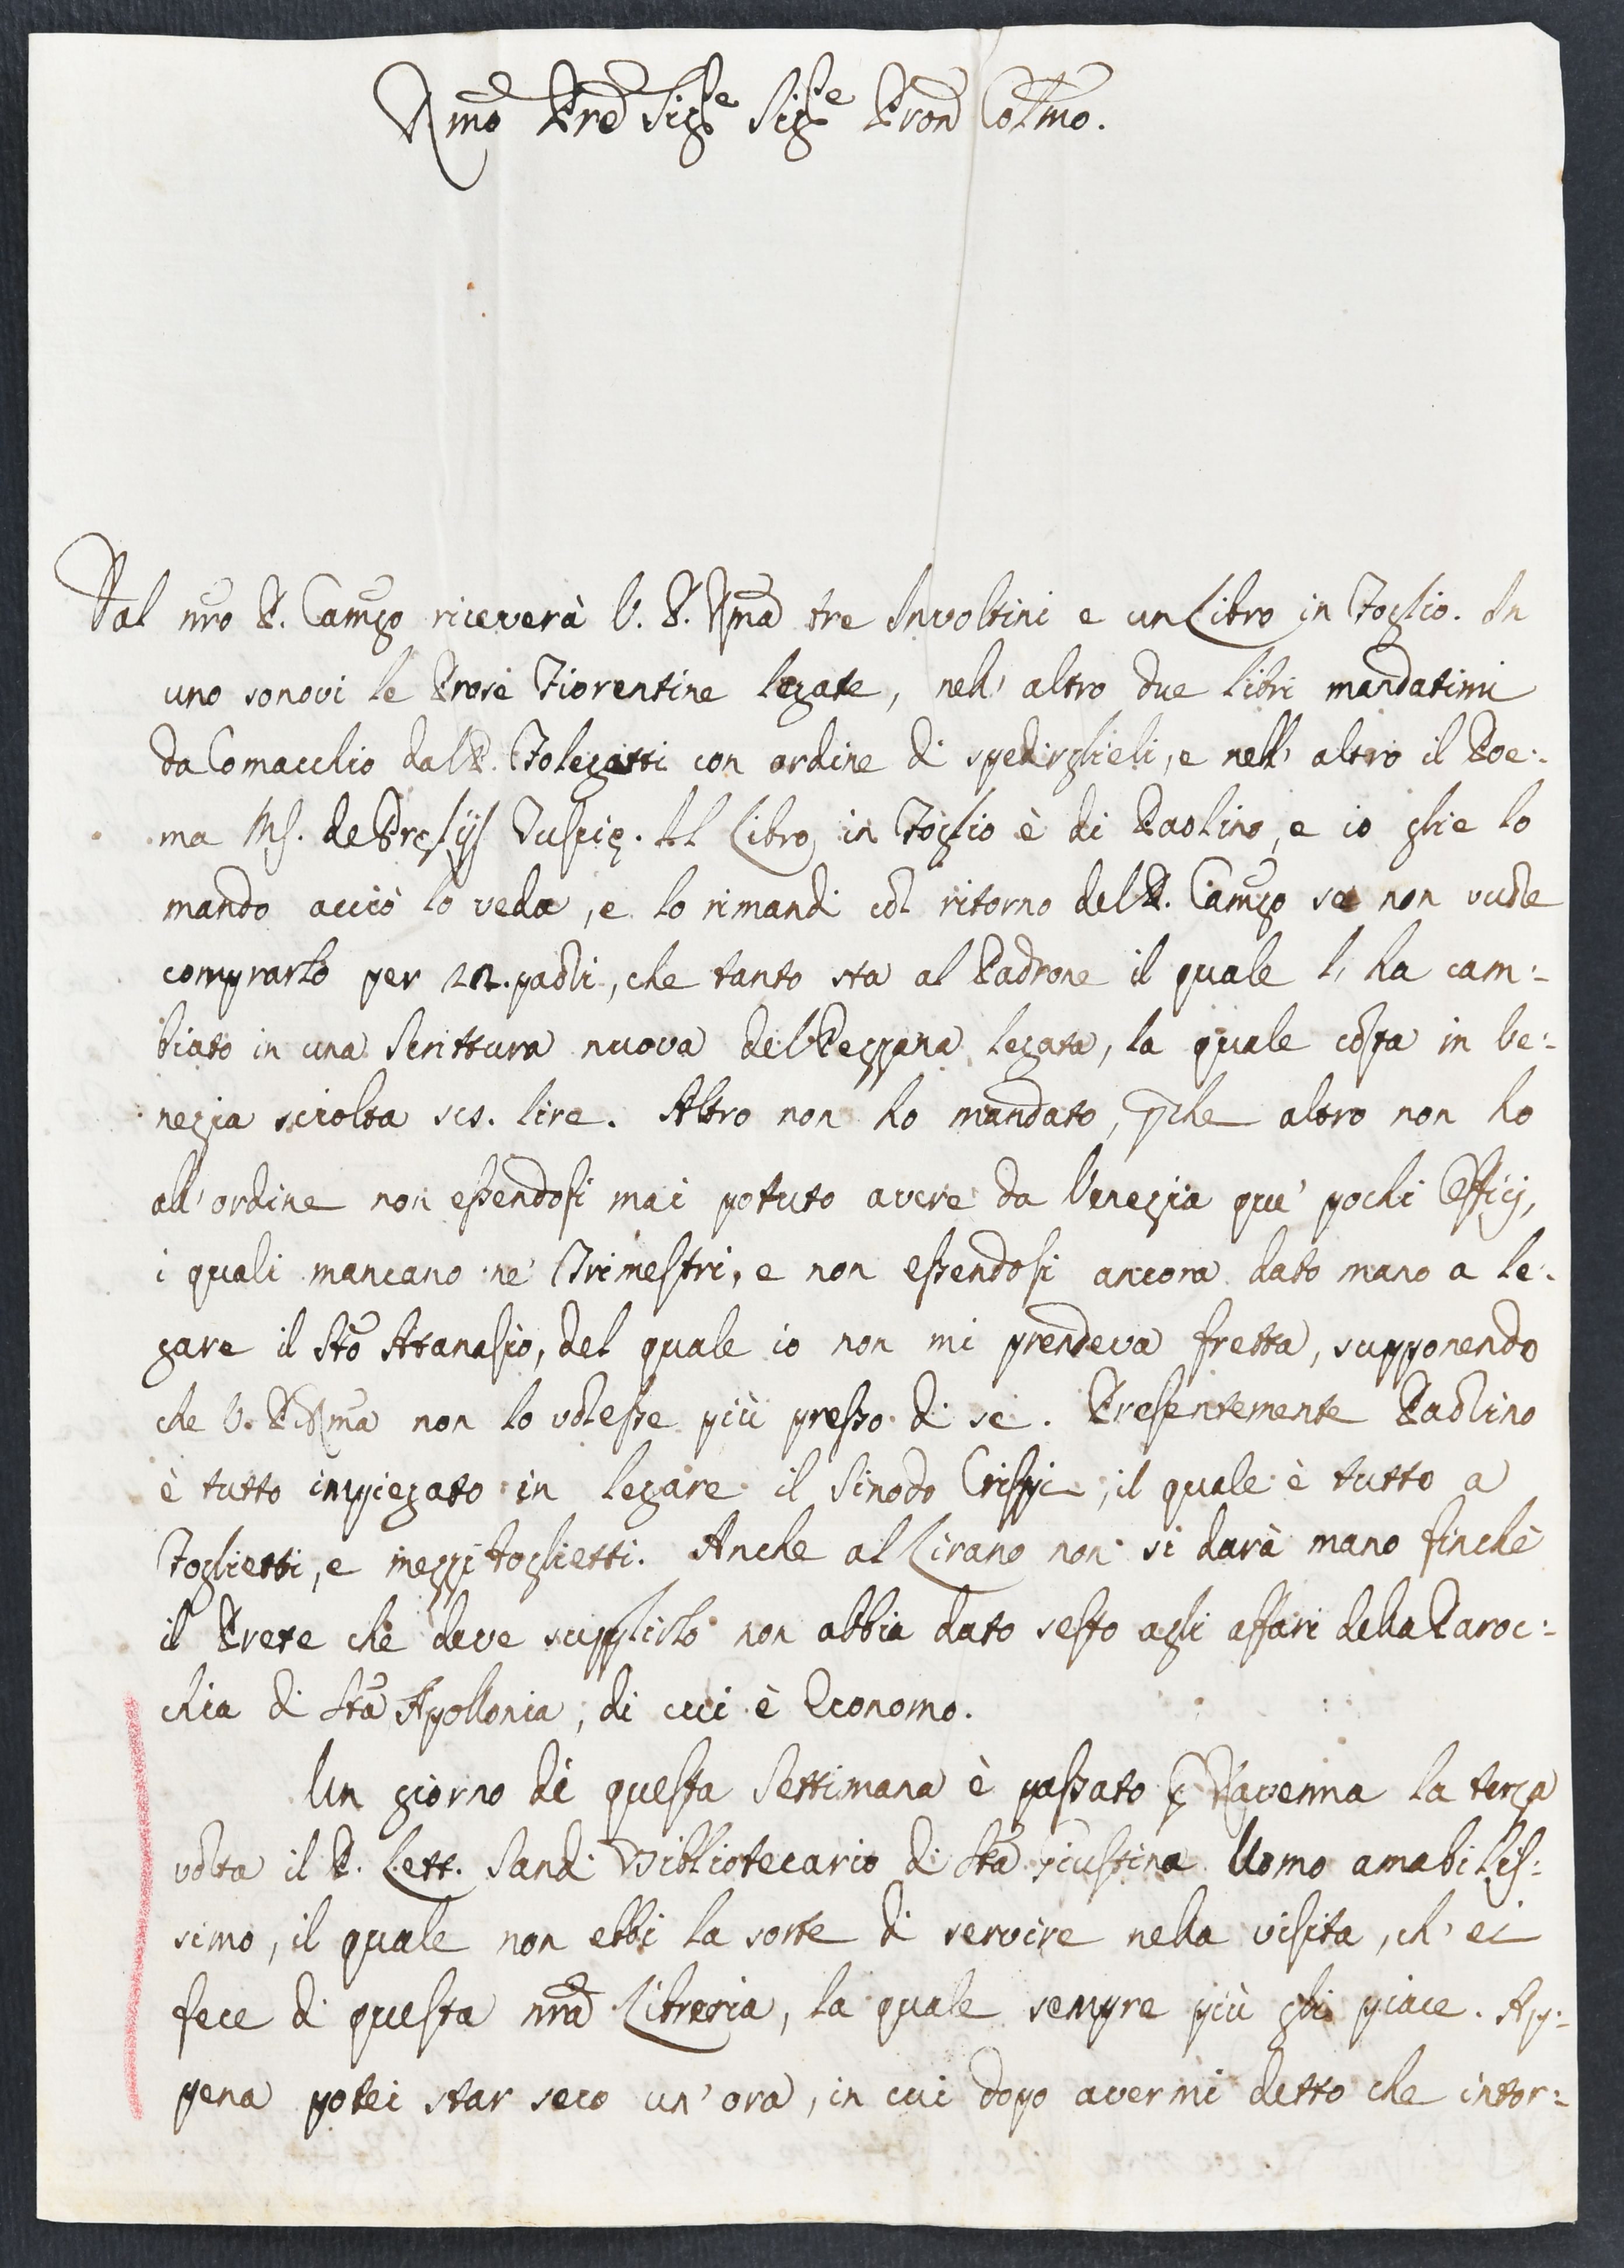 Rmo Pre Sigre Sigre Pron Colmo.
Dal nro P. Camgo riceverà V. P. Rma tre Involtini e un Libro in Foglio. In
uno sonovi le Prose Fiorentine legate, nell' altro due libri mandatimi
da Comacchio dal P. Folegatti con ordine di spedirglieli, e nell' altro il Poe:
ma Ms. de Pręlijs Tuscię. Il Libro in Foglio è di Paolino, e io glie lo
mando acciò lo veda, e lo rimandi col ritorno del P. Camgo se non vuole
comprarlo per 12. paoli, che tanto sta al Padrone il quale l' ha cam:
biato in una Scrittura nuova del Pezzana legata, la quale costa in Ve:
nezia sciolta ses. lire. Altro non ho mandato, pche altro non ho
all' ordine non essendosi mai potuto avere da Venezia que' pochi Efficj,
i quali mancano ne' Trimestri, e non essendosi ancora dato mano a le:
gare il Sto Attanasio, del quale io non mi prendeva fretta, supponendo
che V. P. Rma non lo volesse più presso di se. Presentemente Paolino
è tutto impiegato in legare il Sinodo Crispi, il quale è tutto a
Foglietti, e mezzi foglietti. Anche al Lirano non si darà mano finchè
il Prete che deve supplirlo non abbia dato sesto agli affari della Paroc:
chia di Sta Apollonia, di cui è Economo.
Un giorno di questa Settimana è passato p Ravenna la terza
volta il P. Lett. Sandi Bibliotecario di Sta Giustina Uomo amabilis:
simo, il quale non ebbi la sorte di servire nella visita, ch' ei
fece di questa nra Libreria, la quale sempre più gli piace. Ap:
pena potei star seco un' ora, in cui dopo avermi detto che intor: